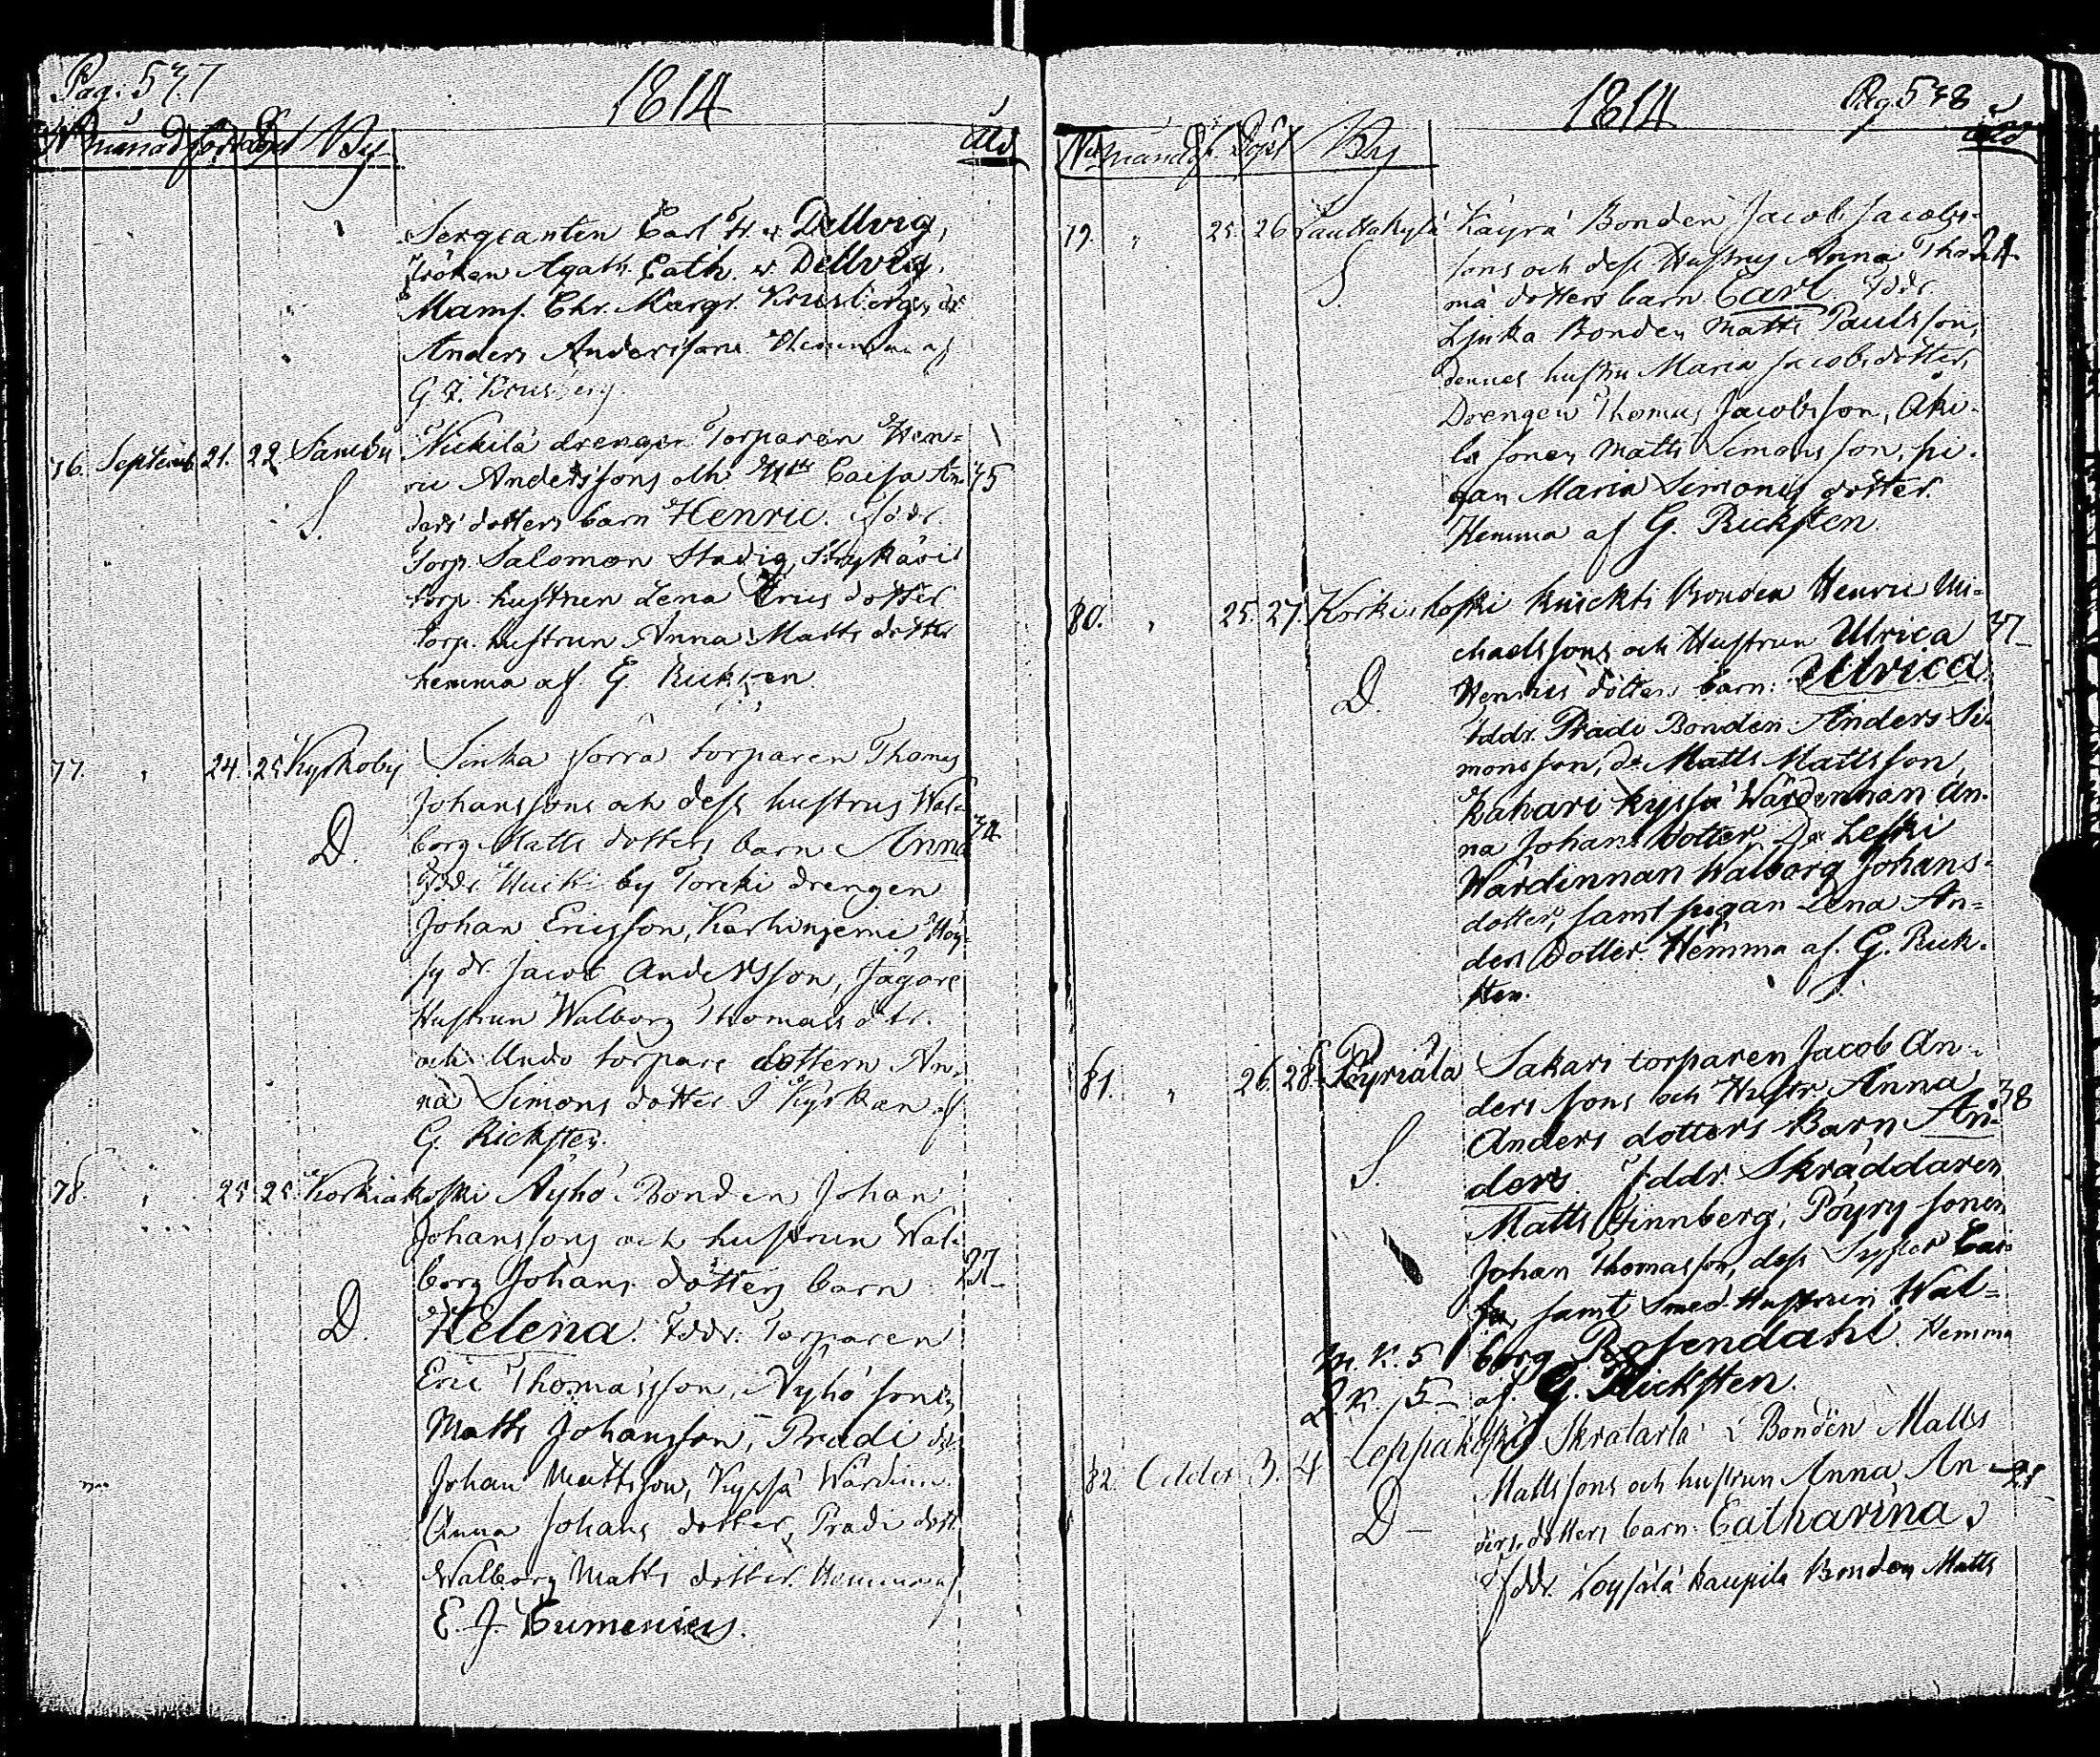 Pag. 577
1814
N. månad född döpt By
åld
Sergeanten Carl Fr v. Dellvig,
fröken Agath. Cath. v. Dellvig,
Mams. Chr. Margr. Krusberg, dr
Anders Andersson. Hemma af
G. F. Krusberg.
76. Septemb. 21. 22. Sameby Nickilä drengen Torparen Hen-
ric Anderssons och Hust. Caisa An- 35
S. ders dotters barn Henric. Fddr
Torp. Salomon Stadig,
torp. hustrun Lena Erics dotter
torp. hustrun Anna Matts dotter
hemma af G. Ricksten
77. " 24. 25. Kyrkoby Sinka Sorra torparen Thomas
Johanssons och dess hustrus Wal-
D. borg Matts dotters barn Anna 34
Fddr. by Torcki drengen
Johan Ericsson,
dr. Jacob Andersson, Jägare
Hustrun Walborg Thomas dotr.
och Undo torpare dottern An-
na Simons dotter I Kyrkan af
G. Ricksten.
78. " 25. 25. Korkiakoski Nyhö Bonden Johan
Johanssons och hustrun Wal-
borg Johans dotters barn 27
D. Helena. Fddr. Torparen
Eric Thomasson, Nyhö sonen
Matts Johansson, Pradi
Johan Mattsson, Kyssä Wärdin.
Anna Johans dotter, Pradi dott.
Walborg Matts dotter. Hemma af
E. J. Eumenius.
1814
Pag. 578
No månad f. Döpt By
åld
79. " 25. 26 Lauttakylä Käyrä Bonden Jacob Jacobs-
S. sons och dess Hustrus Anna Tho- 24
mä dotters barn Carl Fddr
Ljuka Bonden Matts Paulsson,
dennes hustru Maria Jacobs dotter,
Drengen Thomas Jacobsson, Aki-
la sonen Matts Simonsson, pi-
gan Maria Simons dotter.
Hemma af G. Ricksten.
80. " 25. 27. Korkiakoski Knickti Bonden Henric Mi-
chaelssons och Hustrun Ulrica 37
D. Henrics dotters barn: Ulrica
Fddr. Pradi Bonden Anders Si-
monsson, do Matts Mattsson,
Kahari Kyssä Wärdinnan An-
na Johans dotter, Do Leski
Wärdinnan Walborg Johans-
dotter, samt pigan Lena An-
ders dotter. Hemma af. G. Rick-
sten.
81. " 26. 28. Pöyriälä Sakari torparen Jacob An-
ders sons och Hustr. Anna 38
S. Anders dotters Barn An-
ders. Fddr. Skräddaren
Matts Finnberg, Pöyry sonen
Johan Thomasson, dess Syster Cai-
sa, samt Smed Hustrun Wal-
M. K. 5 borg Rosendahl. Hemma
Q. K. 5 af. G. Ricksten.
82. October 3. 4 Leppäkoski Skratarla Bonden Matts
Matts sons och hustrun Anna An- 21
D - ders dotters barn: Catharina,
Fddr. Loysälä Kaupila Bonden Matts